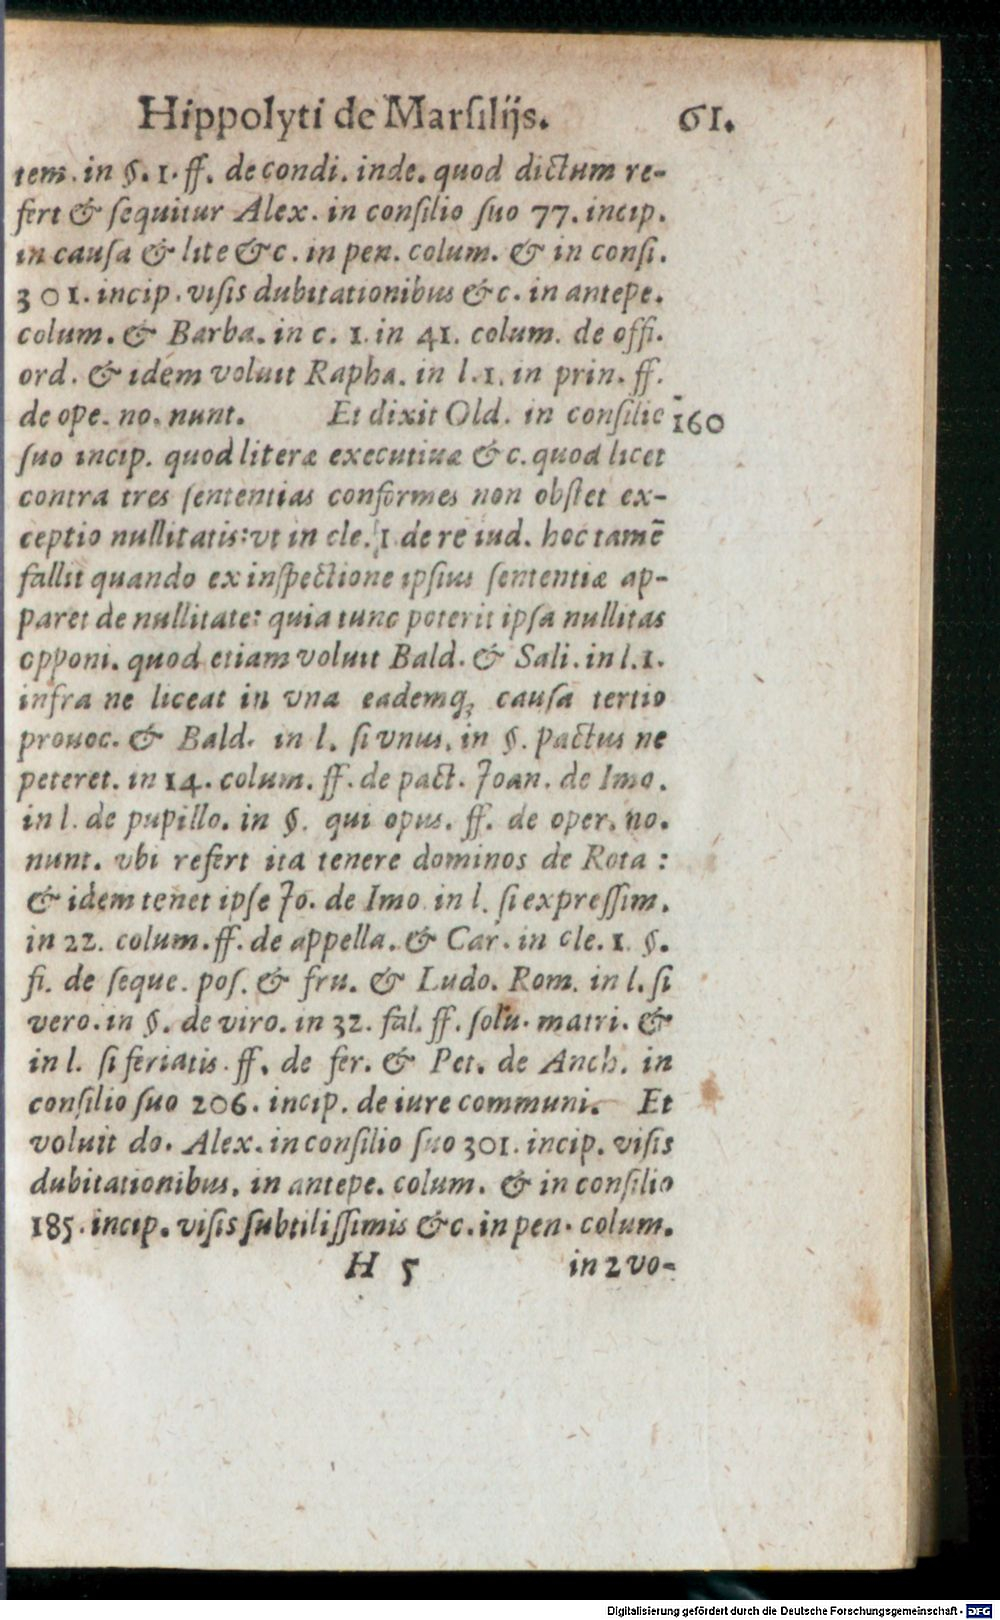 Hippolyti de Marsilijs. 61.
tem. in §. 1. ff. de condi. inde. quod dictum re-
fert & sequitur Alex. in consilio suo 77. incip.
in causa & lite &c. in pen. colum. & in consi.
301. incip. visis dubitationibus &c. in antepe.
colum. & Barba. in c. 1. in 41. colum. de offi.
ord. & idem voluit Rapha. in l. 1. in prin. ff.
de ope. no. nunt. Et dixit Old. in consilio 160
suo incip. quod literæ executiuæ &c. quod licet
contra tres sententias conformes non obstet ex-
ceptio nullitatis: vt in cle. 1 de re iud. hoc tamē
fallit quando ex inspectione ipsius sententiæ ap-
paret de nullitate: quia tunc poterit ipsa nullitas
opponi. quod etiam voluit Bald. & Sali. in l. 1.
infra ne liceat in vna eademq; causa tertio
prouoc. & Bald. in l. si vnus. in §. pactus ne
peteret. in 14. colum. ff. de pact. Joan. de Imo.
in l. de pupillo. in §. qui opus. ff. de oper. no.
nunt. vbi refert ita tenere dominos de Rota:
& idem tenet ipse Jo. de Imo in l. si expressim.
in 22. colum. ff. de appella. & Car. in cle. 1. §.
fi. de seque. pos. & fru. & Ludo. Rom. in l. si
vero. in §. de viro. in 32. fal. ff. solu. matri. &
in l. si feriatis. ff. de fer. & Pet. de Anch. in
consilio suo 206. incip. de iure communi. Et
voluit do. Alex. in consilio suo 301. incip. visis
dubitationibus. in antepe. colum. & in consilio
185. incip. visis subtilissimis &c. in pen. colum.
H 5 in 2 vo-
Digitalisierung gefördert durch die Deutsche Forschungsgemeinschaft - DFG